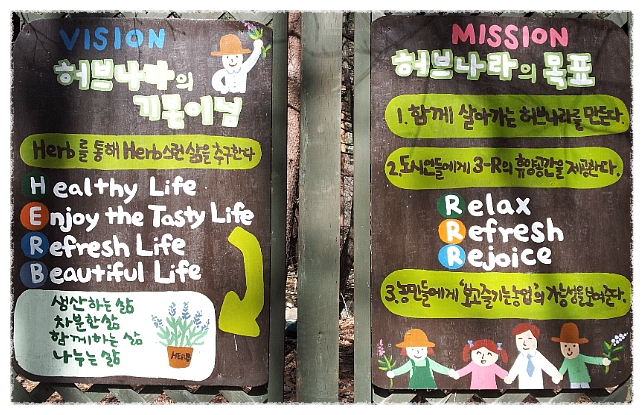 VISION
허브나라의
기본이념
Herb를 통해 Herb스런 삶을 추구한다
Healthy Life
Enjoy the Tasty Life
Refresh Life
Beautiful Life
생산하는 삶
차분한 삶
함께하는 삶
나누는 삶
HERB
MISSION
허브나라의 목표
1. 함께 살아가는 허브나라를 만든다.
2. 도시인들에게 3-R의 휴양공간을 제공한다.
Relax
Refresh
Rejoice
3. 농민들에게 '보고즐기는농업'의 가능성을 보여준다.